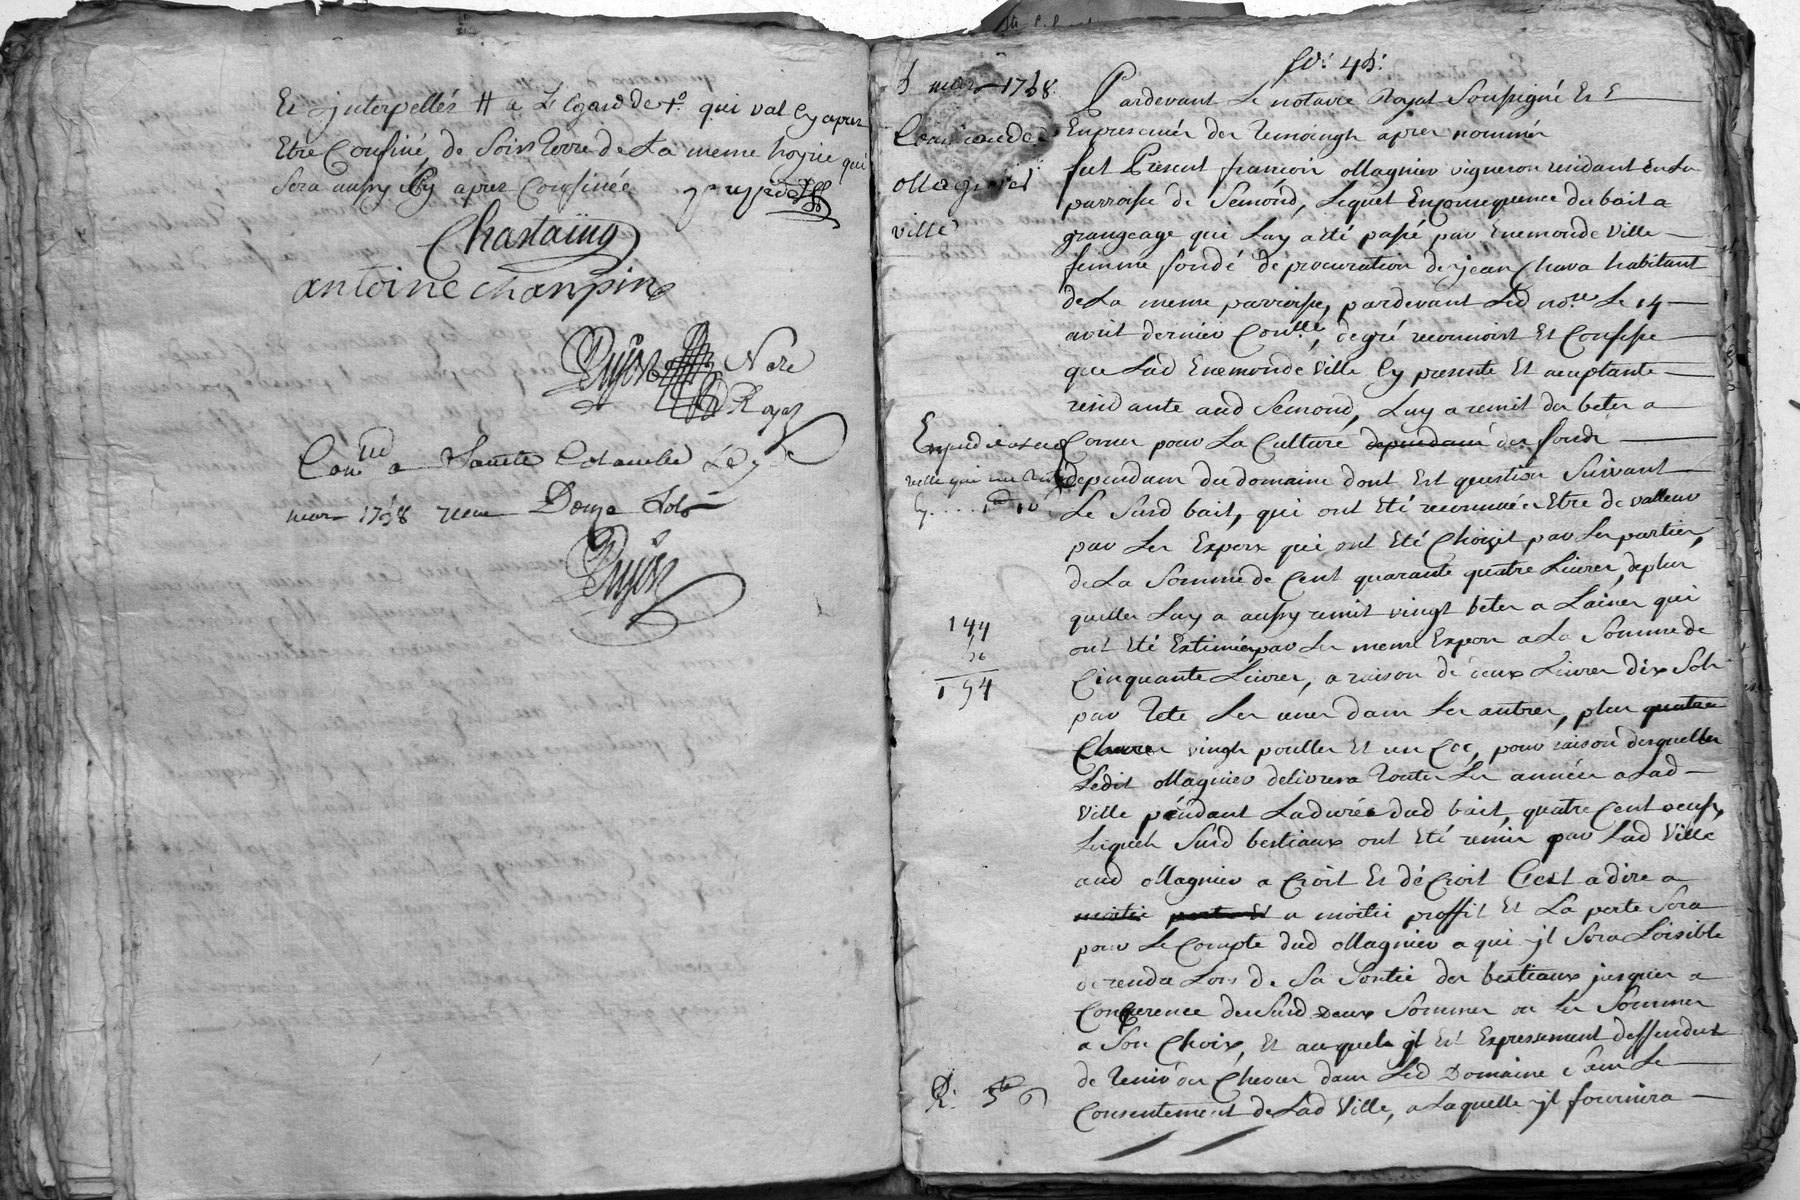 Et interpellés # a L Egard de qui val Cy apres
Etre Confiné, de Soir Terre de La meme hoyrie qui
Sera aussy Cy apres Confinée
Chastaing
antoine champin
Pujos Nore
Royal
Conlle a Sainte Colombe Le
mars 1738 reçu Douze sols
Pujos
mars 1738
Commande
Magnier
ville
144
50
194
R. 5
fo. 43.
Pardevant Le notaire Royal Soussigné Et E
Enpresence des Temoingts apres nommés
fut Present françois Magnier vigneron residant en La
parroisse de Semond, Lequel Enconsequence du bail a
grangeage qui Luy a été passé par Enemonde Ville
femme fondé de procuration de jean Chava habitant
de La meme parroisse, pardevant Led nore Le 14
avril dernier Conllé, de gré reconnoist Et Confesse
que Lad Enemonde Ville Cy presente Et acceptante
residante aud Semond, Luy a remit des betes a
Corner pour La Culture dependant des fonds
dependans du domaine dont Est question Suivant
Le Susd bail, qui ont Eté reconnuës Etre de valleur
par Les Experts qui ont Eté Choizit par Les parties,
de La Somme de Cent quarante quatre Livres, de plus
quelle Luy a aussy remit vingt betes a Laines qui
ont Eté Estimées par Les meme Experts a La Somme de
Cinquante Livres, a raison de deux Livres dix Sols
par Tete Les unes dans Les autres, plus quatre
Chevres vingts poulles Et un Coc, pour raison desquelles
Ledit Magnier delivrera Toutes Les années a Lad
Ville pendant La durée dud bail, quatre Cent oeufs,
Lesquels Susd bestiaux ont Eté remis par Lad Ville
aud Magnier a Croit Et déCroit C'est a dire a
moitié perte Et a moitié proffit Et La perte Sera
pour Le Compte dud Magnier a qui jl Sera Loisible
de rendre Lors de Sa Sortie des bestiaux jusques a
Concurence des Susd Deux Sommes ou Les Sommes
a Son Choix, Et auquel jl Est Expressement deffendut
de Tenir des Chevres dans Led Domaine Sans Le
Consentement de Lad Ville, a Laquelle jl fournira